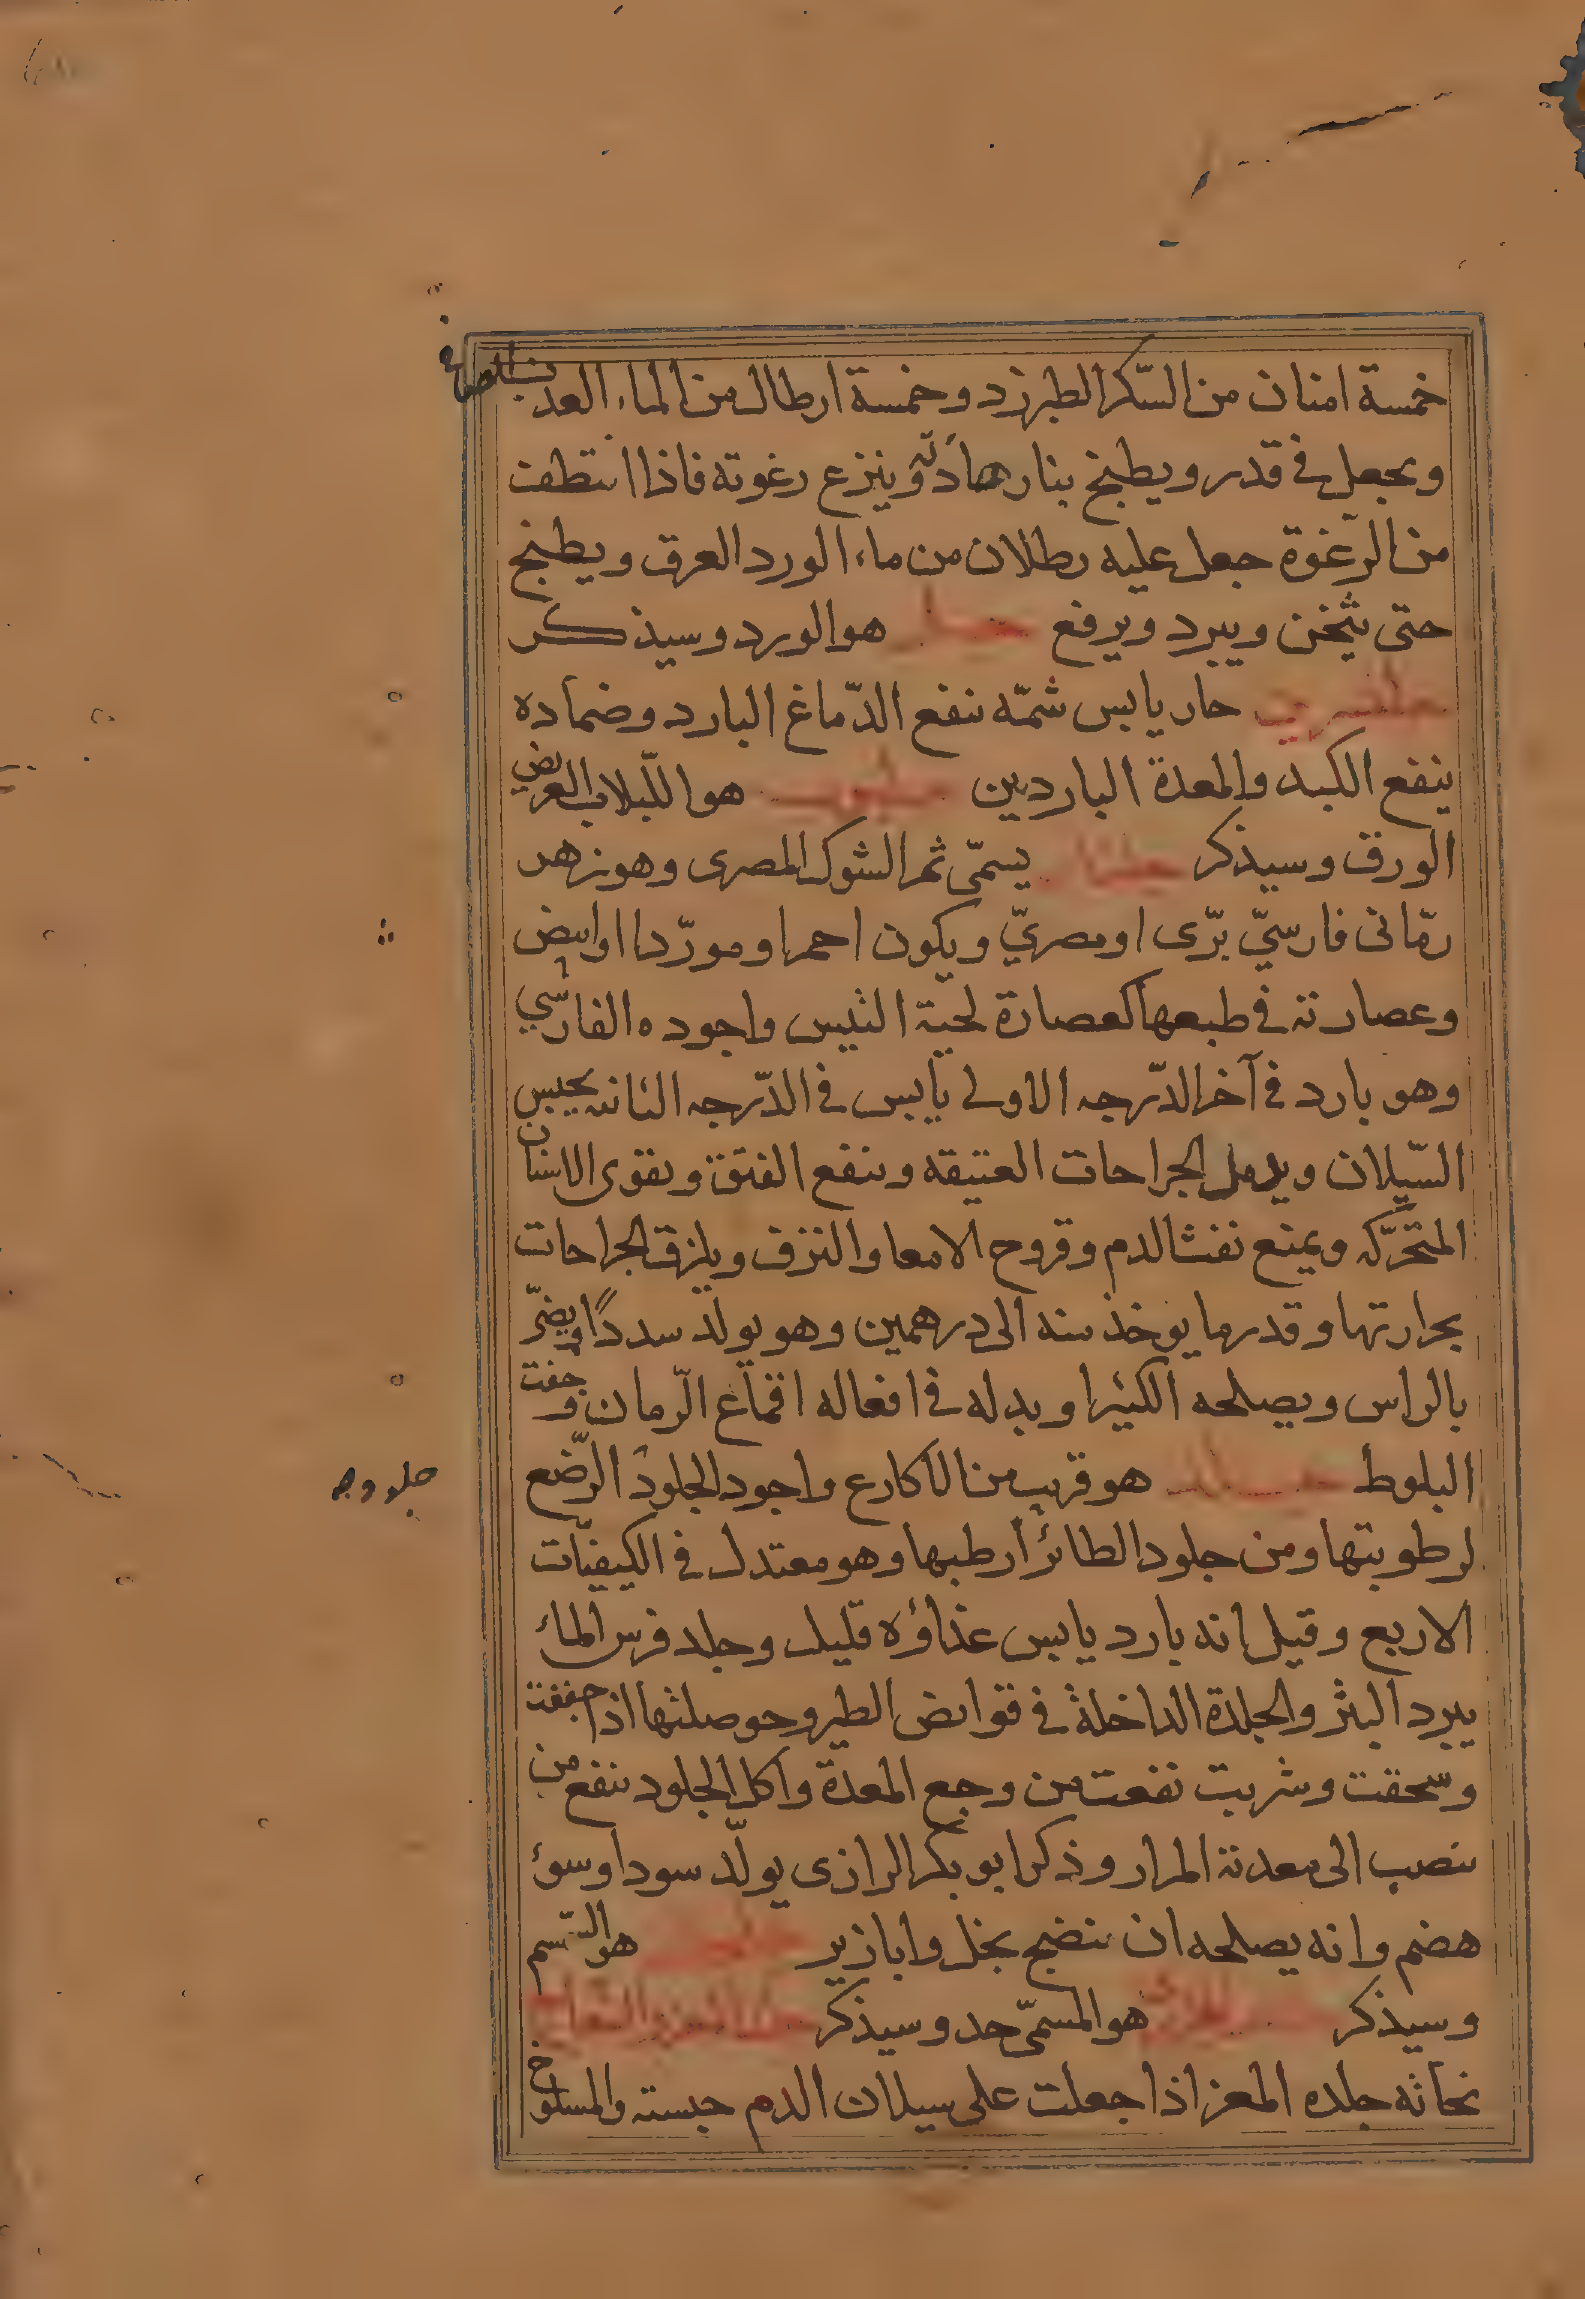 خمسة امنان من السّكر الطبرزد وخمسة ارطال من الماء العذب الصافى
ويجعل فى قدر ويطبخ بنار هادئة وينزع رغوته فاذا انتظف
من الرّغوة جعل عليه رطلان من ماء الورد العرق ويطبخ
حتى يثخن ويبرد ويرفع هو الورد وسيذكر
حار يابس شمّه ينفع الدّماغ البارد وضماده
ينفع الكبد والمعدة الباردين هو اللّبلاب العريض
الورق وسيذكر يسمّى ثمر الشوك المصرى وهو زهر
رمّانى فارسيّ برّى او مصريّ ويكون احمر او مورّدا او ابيض
وعصارته فى طبعها كعصارة لحية التيس واجوده الفارسي
وهو بارد فى آخر الدّرجه الاولى يابس فى الدّرجه الثانيه يحبس
السّيلان ويدمل الجراحات العتيقه وينفع الفتق ويقوى الاسنان
المتحرّكه ويمنع نفث الدم وقروح الامعا والنزف ويلزق الجراحات
بحرارتها وقدر ما يوخذ منه الى درهمين وهو يولد سددًا ويضرّ
بالراس ويصلحه الكثيرا وبدله فى افعاله اقماع الرّمان وجفت
البلوط هو قريب من الاكارع واجود الجلود الرّضع
لرطوبتها ومن جلود الطائر أرطبها وهو معتدل فى الكيفيّات
الاربع وقيل انه بارد يابس غذاؤه قليل وجلد فرس المائ
يبرد البثر والجلدة الداخلة فى قوانض الطير وحوصلتها اذا جففت
وسحقت وشربت نفعت من وجع المعدة واكل الجلود ينفع من
ينصب الى معدته المرار وذكر ابو بكر الرازى يولّد سودا وسوئ
هضم وانه يصلحه ان ينضج بخل وابازير هو السّمسم
وسيذكر هو المسمّى حد وسيذكر
نحاته جلده المعز اذا جعلت على سيلان الدم حبسته والمسلوخ